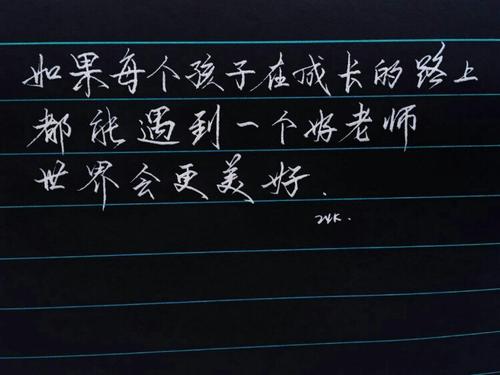 如果每个孩子在成长的路上
都能遇到一个好老师
世界会更美好.
24K.